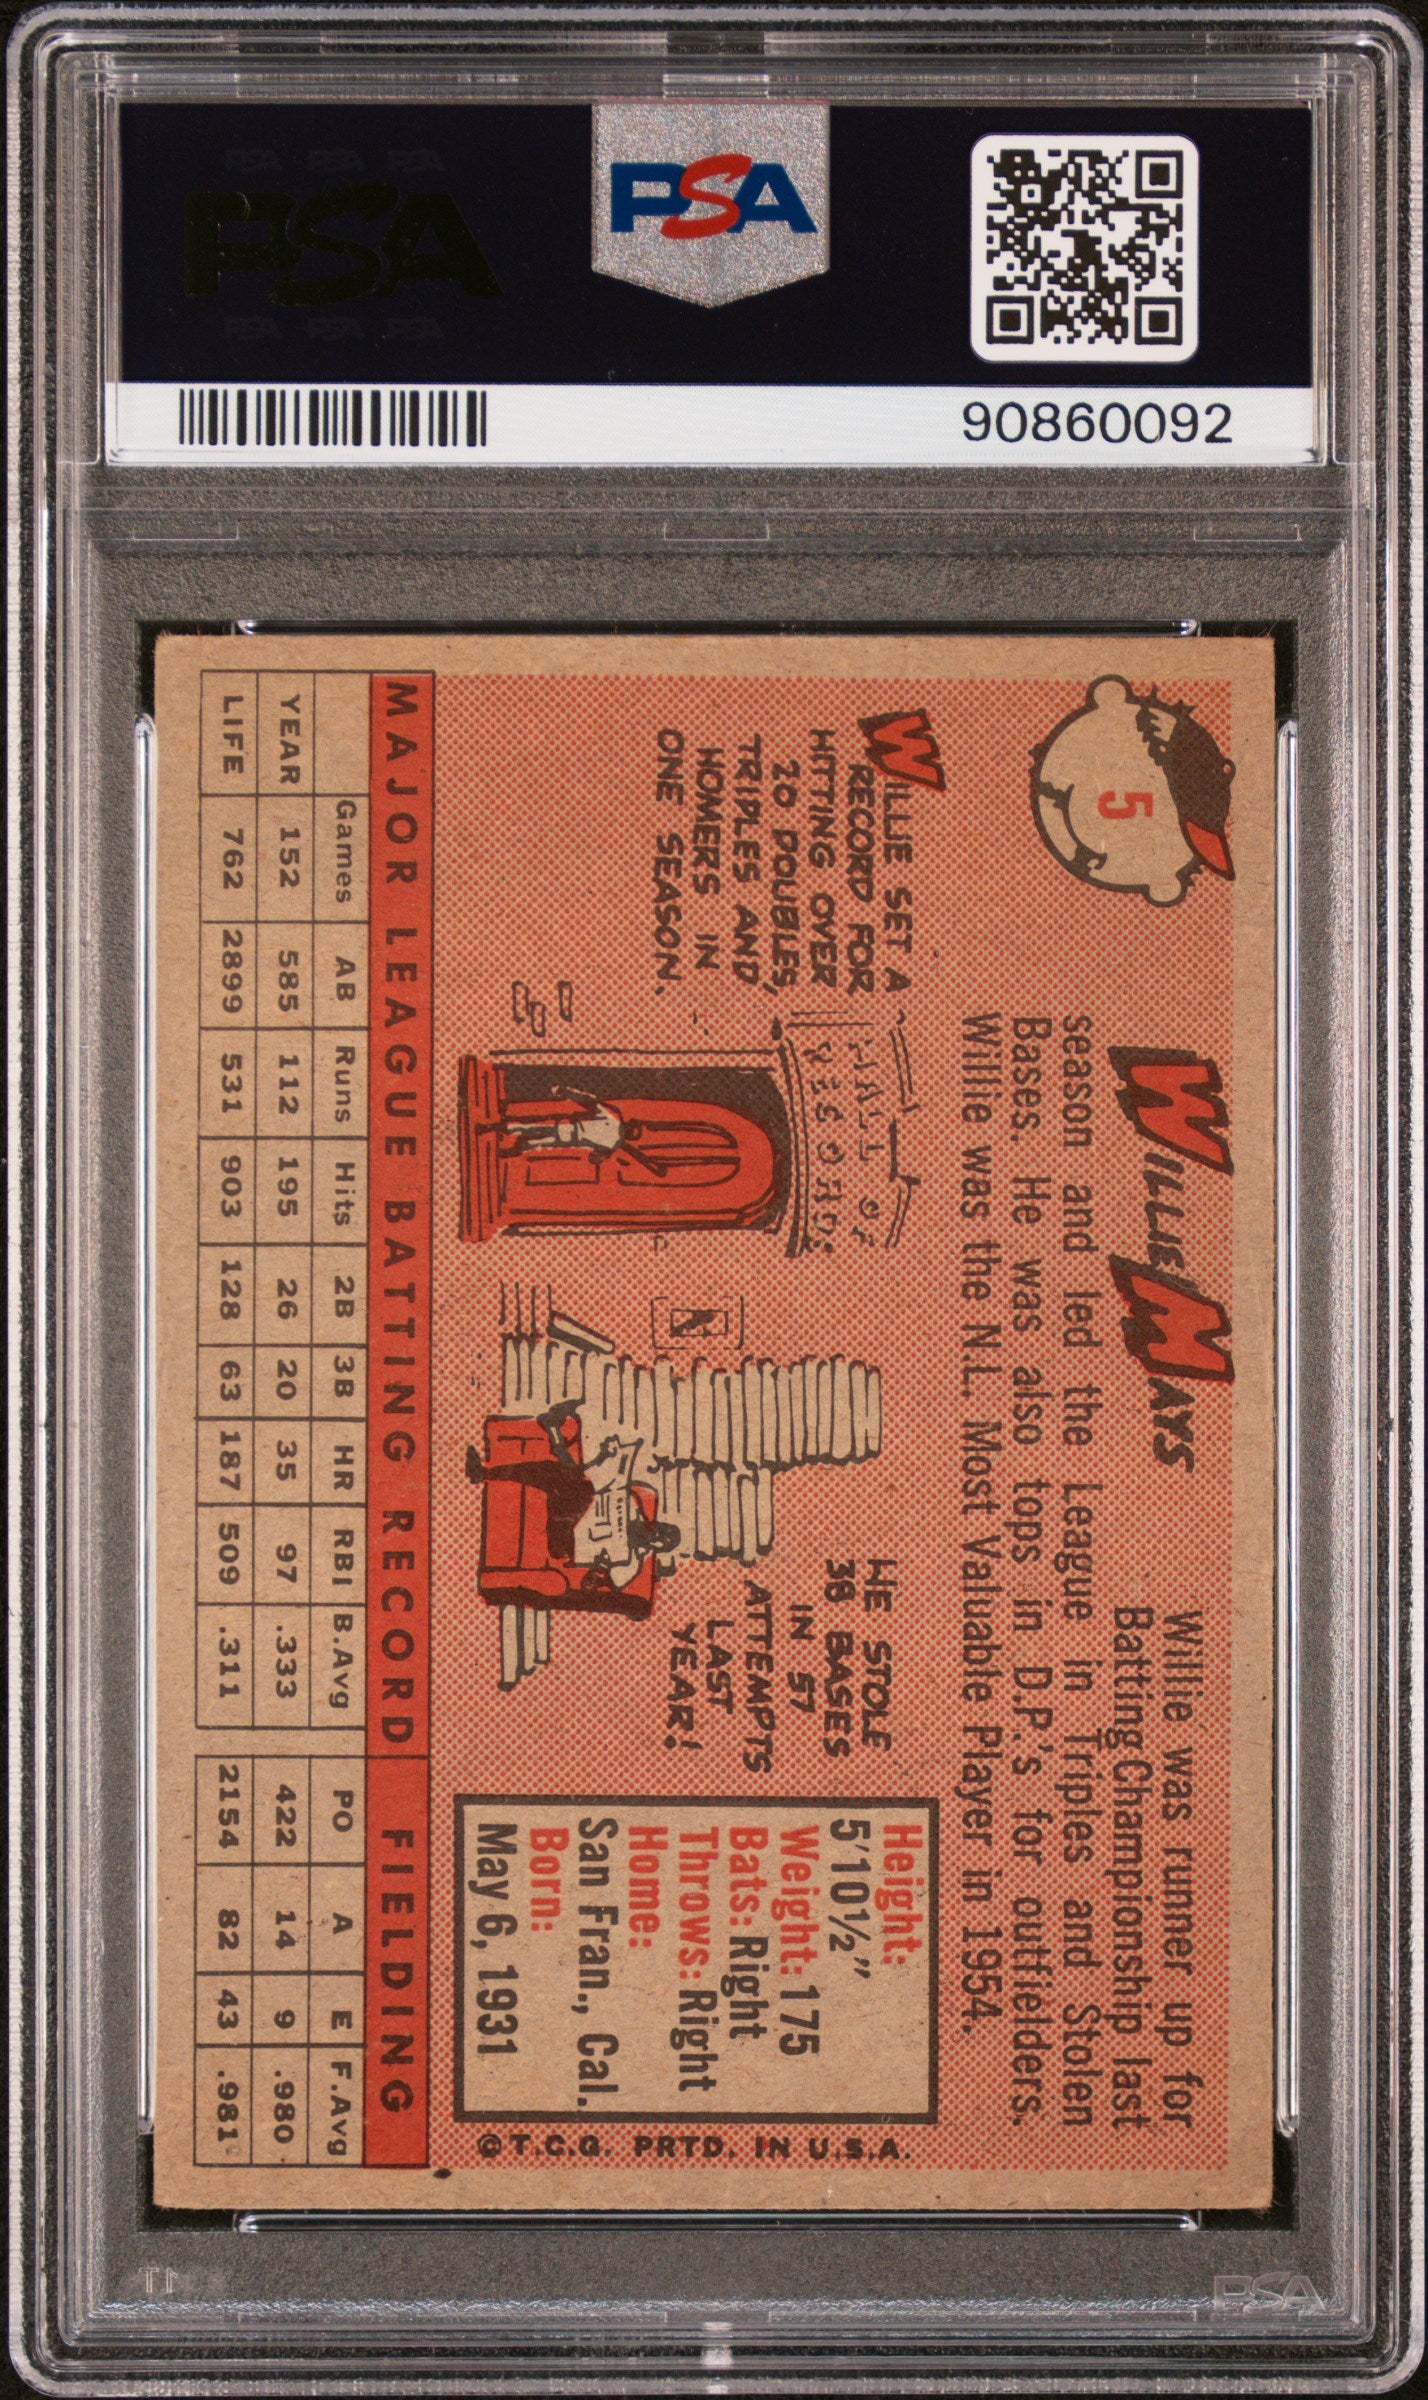 PSA PSA PSA
PSA
PSA PSA PSA
PSA
90860092
5
WILLIE MAYS
Willie was runner up for
Batting Championship last
season and led the League in Triples and Stolen
Bases. He was also tops in D.P.'s for outfielders.
Willie was the N.L. Most Valuable Player in 1954.
WILLIE SET A
RECORD FOR
HITTING OVER
20 DOUBLES,
TRIPLES AND
HOMERS IN
ONE SEASON.
HALL OF
RECORDS
HE STOLE
38 BASES
IN 57
ATTEMPTS
LAST
YEAR!
Height:
5'10½"
Weight: 175
Bats: Right
Throws: Right
Home:
San Fran., Cal.
Born:
May 6, 1931
©T.C.G. PRTD. IN U.S.A.
MAJOR LEAGUE BATTING RECORD FIELDING
Games AB Runs Hits 2B 3B HR RBI B.Avg PO A E F.Avg
YEAR 152 585 112 195 26 20 35 97 .333 422 14 9 .980
LIFE 762 2899 531 903 128 63 187 509 .311 2154 82 43 .981
PSA